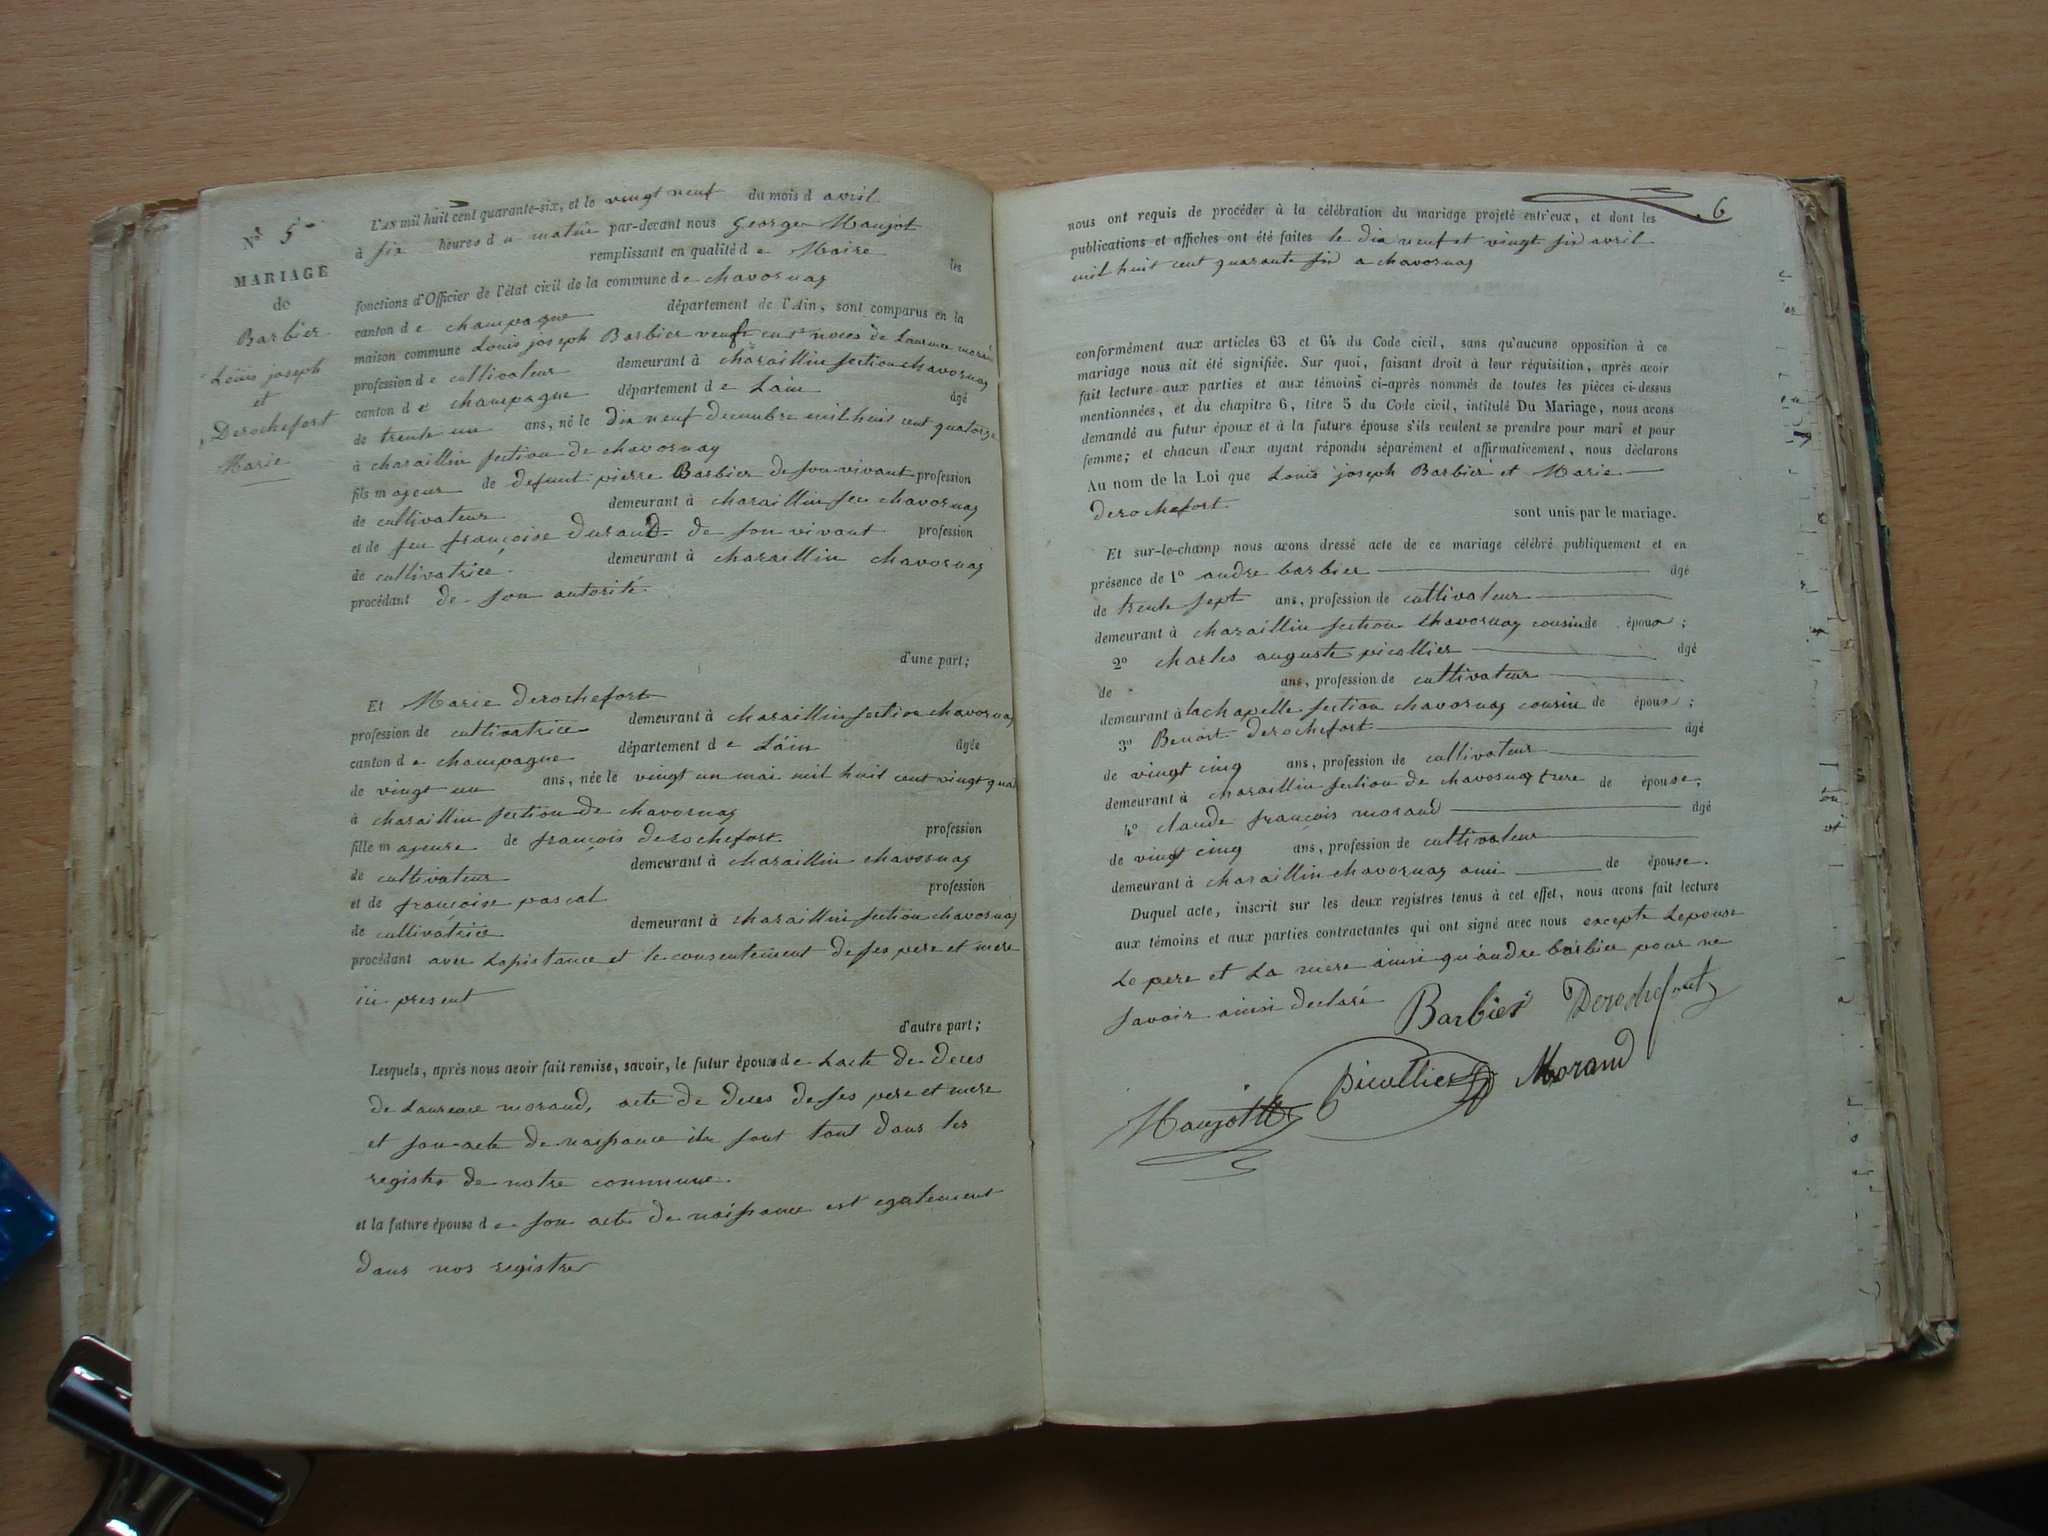 N° 5
MARIAGE
de
Barbier
Louis joseph
et
Derochefort
Marie
L'AN mil huit cent quarante-six, et le vingt neuf du mois d avril
à six heures du matin par-devant nous George Maujot
remplissant en qualité de Maire les
fonctions d'Officier de l'état civil de la commune de chavornay
canton de champagne département de l'Ain, sont comparus en la
maison commune Louis joseph Barbier veuf en 1er noces de Laurence morand
profession de cultivateur demeurant à charaillin section chavornay
canton de champagne département de Lain âgé
de trente un ans, né le dix neuf decembre mil huit cent quatorze
à charaillin section de chavornay
fils majeur de defunt pierre Barbier de son vivant profession
de cultivateur demeurant à charaillin sec chavornay
et de feu françoise durand de son vivant profession
de cultivatrice demeurant à charaillin chavornay
procédant de son autorité
d'une part;
Et Marie derochefort
profession de cultivatrice demeurant à charaillin section chavornay
canton de champagne département de Lain âgée
de vingt un ans, née le vingt un mai mil huit cent vingt quat
à charaillin section de chavornay
fille majeure de françois derochefort profession
de cultivateur demeurant à charaillin chavornay
et de françoise pascal profession
de cultivatrice demeurant à charaillin section chavornay
procédant avec Lapistance et le consentement de ses pere et mere
ici present
d'autre part;
Lesquels, après nous avoir fait remise, savoir, le futur époux de Lacte de deces
de Laurence morand, acte de deces de ses pere et mere
et son acte de naissance ils sont tout dans les
registre de notre commune.
et la future épouse de son acte de naissance est egalement
dans nos registre
6
nous ont requis de procéder à la célébration du mariage projeté entr'eux, et dont les
publications et affiches ont été faites le dix neuf et vingt six avril
mil huit cent quarante six a chavornay
conformément aux articles 63 et 64 du Code civil, sans qu'aucune opposition à ce
mariage nous ait été signifiée. Sur quoi, faisant droit à leur réquisition, après avoir
fait lecture aux parties et aux témoins ci-après nommés de toutes les pièces ci-dessus
mentionnées, et du chapitre 6, titre 5 du Code civil, intitulé Du Mariage, nous avons
demandé au futur époux et à la future épouse s'ils veulent se prendre pour mari et pour
femme; et chacun d'eux ayant répondu séparément et affirmativement, nous déclarons
Au nom de la Loi que Louis joseph Barbier et Marie
derochefort sont unis par le mariage.
Et sur-le-champ nous avons dressé acte de ce mariage célébré publiquement et en
présence de 1° andre barbier âgé
de trente sept ans, profession de cultivateur
demeurant à charaillin section chavornay cousin de époux;
2° charles auguste picollier âgé
de ans, profession de cultivateur
demeurant à la chapelle section chavornay cousin de époux;
3° Benoit derochefort âgé
de vingt cinq ans, profession de cultivateur
demeurant à charaillin section de chavornay frere de épouse;
4° claude françois morand âgé
de vingt cinq ans, profession de cultivateur
demeurant à charaillin chavornay ami de épouse.
Duquel acte, inscrit sur les deux registres tenus à cet effet, nous avons fait lecture
aux témoins et aux parties contractantes qui ont signé avec nous excepte Lepouse
Le pere et La mere ainsi qu'andre barbier pour ne
savoir ainsi declaré Barbier Derochefort
Maujot Picollier Morand